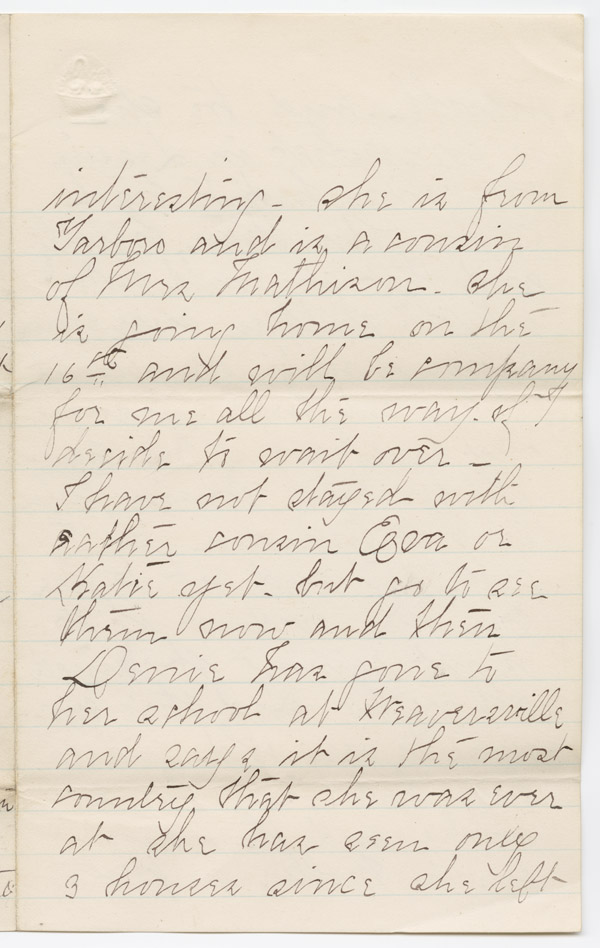 interesting - she is from
Tarboro and is a cousin
of Mrs Mathison - she
is going home on the
16th and will be company
for me all the way. if I
decide to wait over -
I have not stayed with
eather cousin Eva or
Katie yet - but go to see
them now and then
Dennie has gone to
her school at Weaversville
and says it is the most
country that she was ever
at she has seen only
3 houses since she left